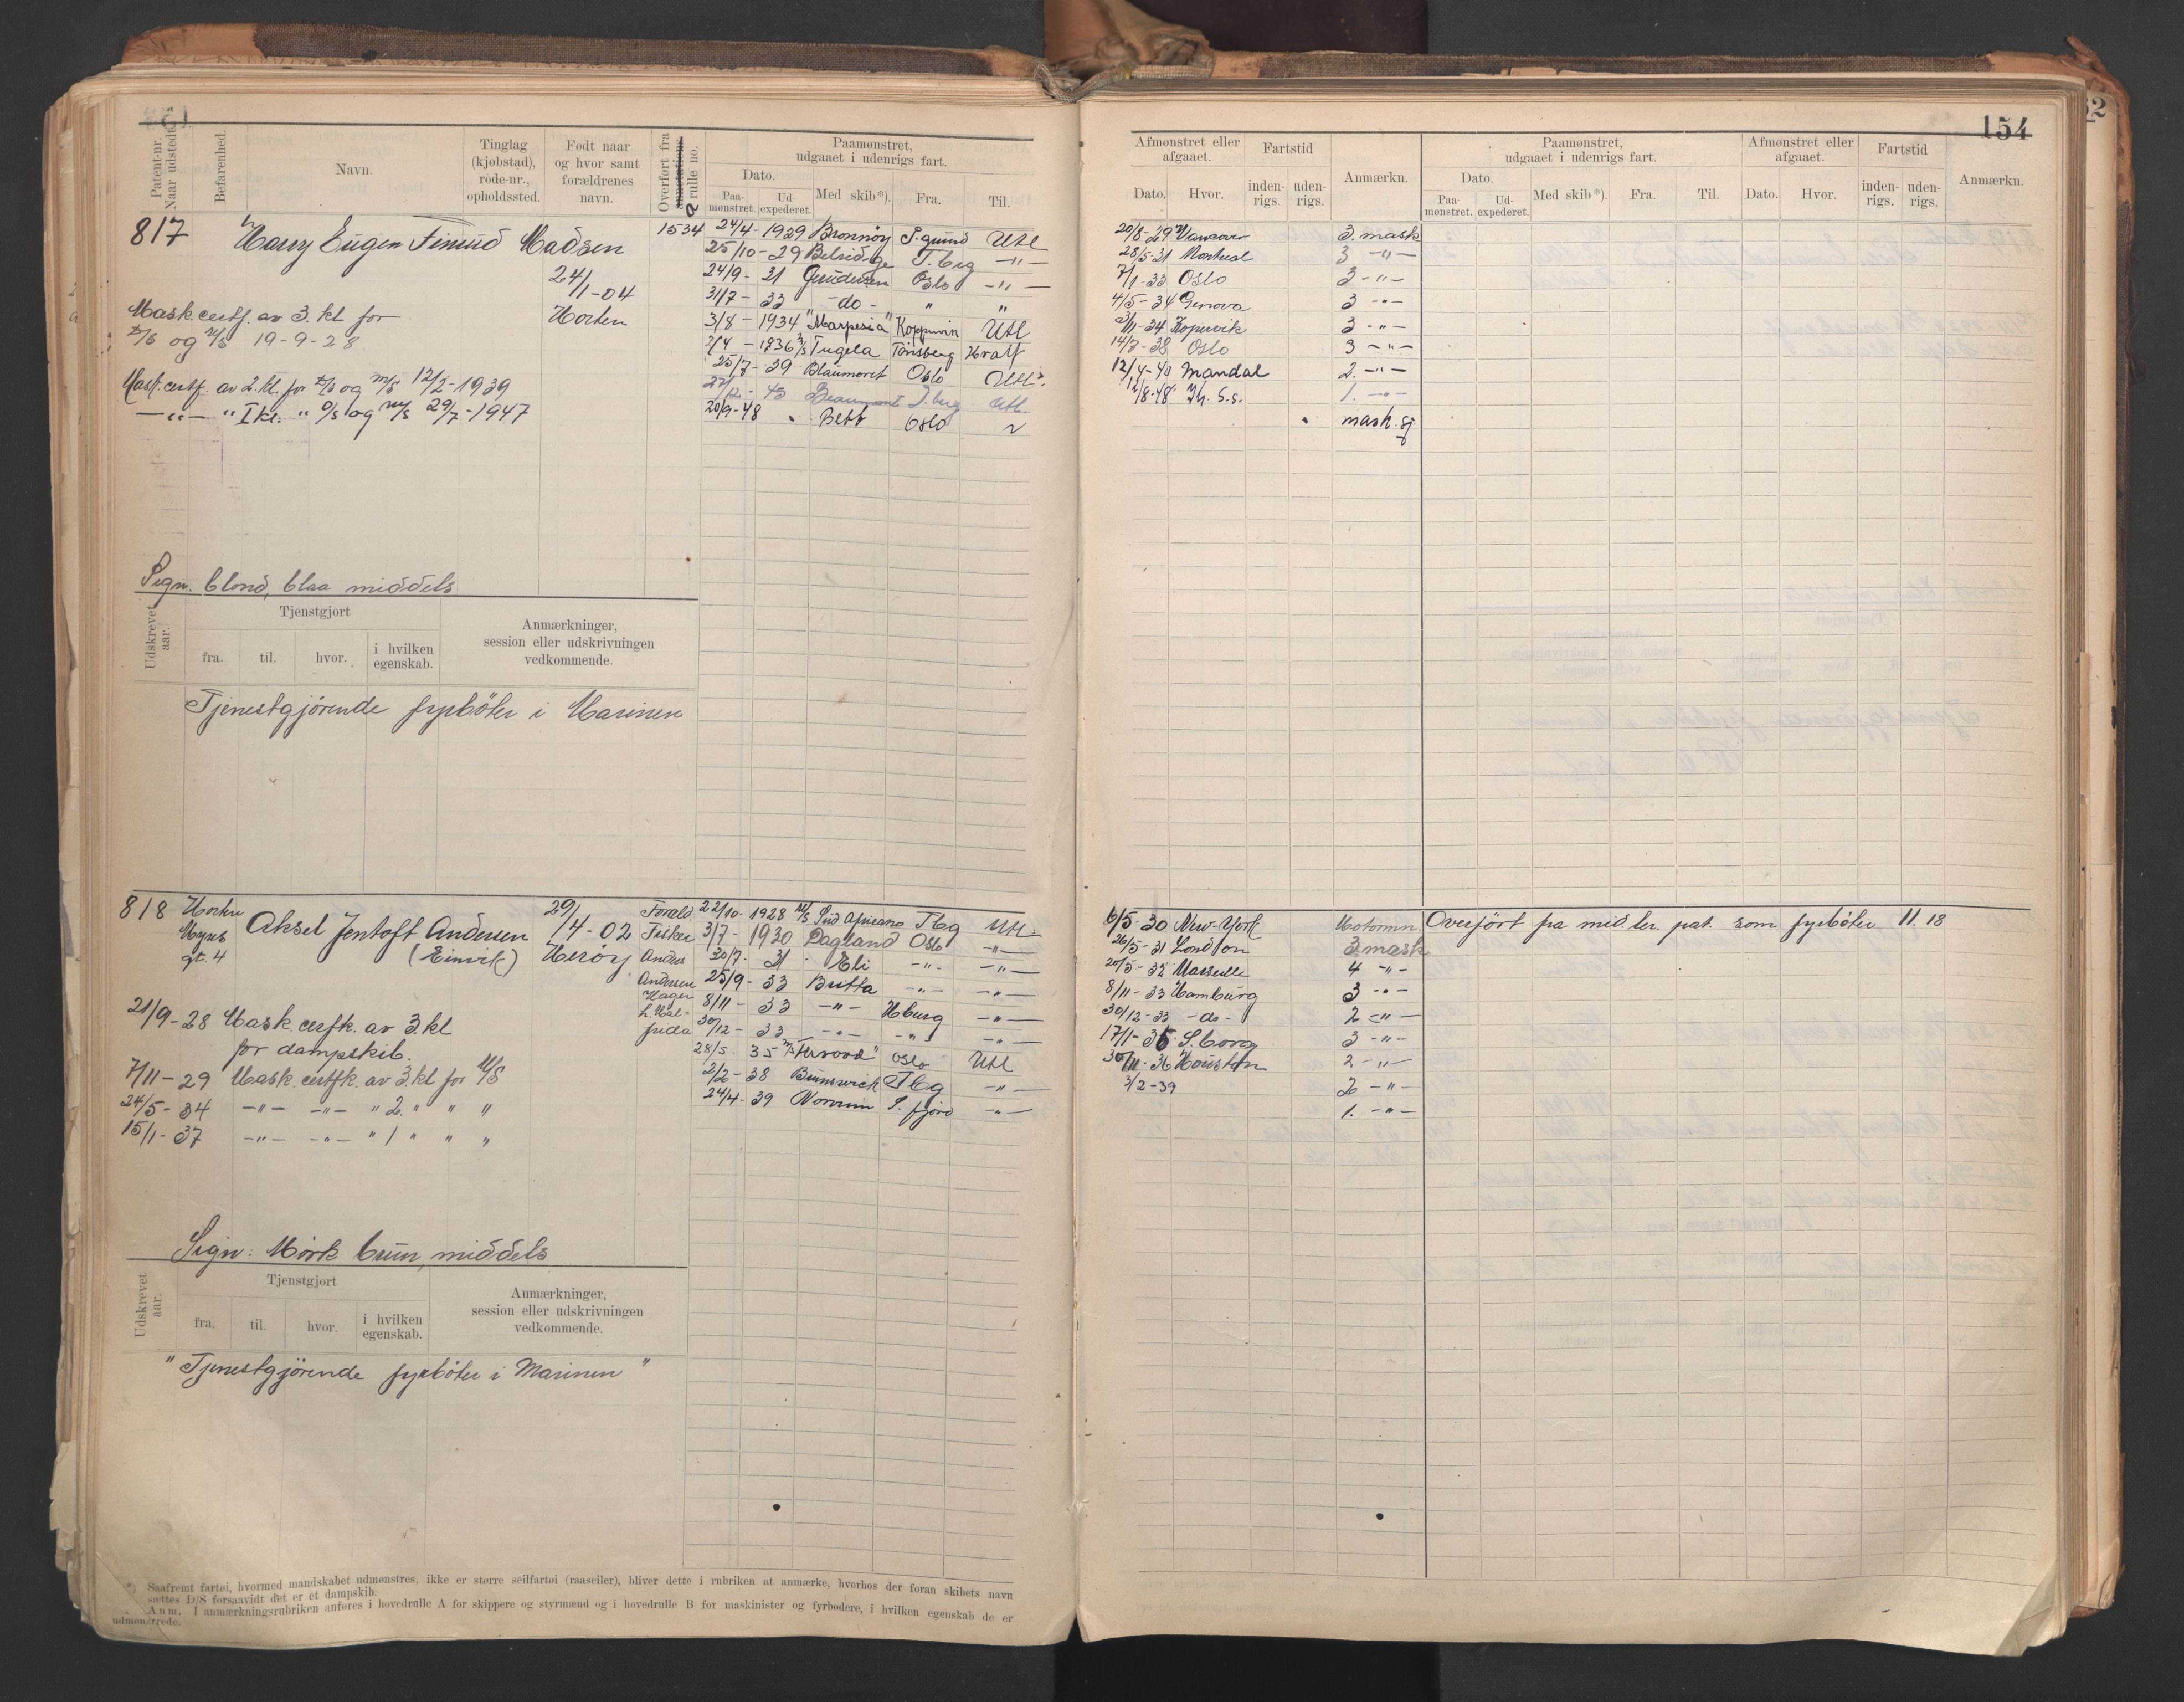 154
Patent-nr. Naar udstedt.
Befarenhed.
Navn.
Tinglag (kjøbstad), rode-nr., opholdssted.
Født naar og hvor samt forældrenes navn.
Overført fra annotations rulle no.
Paamønstret, udgaaet i udenrigs fart.
Dato.
Paa-mønstret.
Ud-expederet.
Med skib*).
Fra.
Til.
Afmønstret eller afgaaet.
Dato.
Hvor.
Fartstid
inden-rigs.
uden-rigs.
Anmærkn.
Paamønstret, udgaaet i udenrigs fart.
Dato.
Paa-mønstret.
Ud-expederet.
Med skib*).
Fra.
Til.
Afmønstret eller afgaaet.
Dato.
Hvor.
Fartstid
inden-rigs.
uden-rigs.
Anmærkn.
817 Harry Eugen Finud Madsen
24/1-04
Horten
1534
Mask.certf. av 3. kl for
D/S og M/S 19-9-28
Mask.certf. av 2. kl. for D/S og M/S 12/2-1939
-"- " I kl. " D/S og M/S 29/7-1947
24/4-1929 Bronnøy P.grund Utl
25/10-29 T.brg -"-
24/9-31 Oslo -"-
31/7-33 -do- " "
3/8-1934 "Marpesia" Utl
1936 Tugela Tønsberg Hvalf
25/7-39 Oslo Utl.
Beaumont T.brg Utl.
20/9-48 Oslo
20/8-29 3. mask
28/5-31 Montreal 3 -"-
7/1-33 Oslo 3 -"-
4/5-34 Genova 3 -"-
Kopervik 3 -"-
14/7-38 Oslo 3 -"-
12/4-40 Mandal 2. -"-
1. -"-
mask.
Sign. blond, blaa middels
Udskrevet aar.
Tjenstgjort
fra.
til.
hvor.
i hvilken egenskab.
Anmærkninger, session eller udskrivningen vedkommende.
Tjenestgjørende fyrbøter i Marinen
818 Horten Aksel Jentoft Andersen
gt. 4 (Einvik)
29/4-02
Herøy
Foræld.
Fisker
Anders
Andersen
Hagen
21/9-28 Mask.certfk. av 3. kl
for dampskib.
7/11-29 Mask.certfk. av 3. kl for M/S
24/5-34 -"- -"- " 2. " " "
15/1-37 -"- -"- " 1 " " "
22/10-1928 M/S Sud Africano Tbg Utl
3/7-1930 Dagland Oslo -"-
30/7-31 Eli -"- -"-
25/9-33 Butta -"- -"-
8/11-33 -"- Hburg -"-
30/12-33 -"- -"- -"-
28/5-35 Oslo Utl
2/2-38 Brunswick Tbg -"-
24/4-39 S.fjord -"-
6/5-30 New-York Motormn.
26/5-31 London 3 mask
20/5-32 Marseille 4 -"-
8/11-33 Hamburg 3 -"-
30/12-33 -do- 2 -"-
17/1-35 S.borg 3 -"-
30/11-36 Houston 2 -"-
3/2-39 2 -"-
1. -"-
Overført fra mid.ler. pat. som fyrbøter 11. 18
Sign: Mørk brun, middels
Udskrevet aar.
Tjenstgjort
fra.
til.
hvor.
i hvilken egenskab.
Anmærkninger, session eller udskrivningen vedkommende.
"Tjenestgjørende fyrbøter i Marinen"
*) Saafremt fartøi, hvormed mandskabet udmønstres, ikke er større seilfartøi (raaseiler), bliver dette i rubriken at anmærke, hvorhos der foran skibets navn
sættes D/S forsaavidt det er et dampskib.
Anm. I anmærkningsrubriken anføres i hovedrulle A for skippere og styrmænd og i hovedrulle B for maskinister og fyrbødere, i hvilken egenskab de er
udmønstrede.